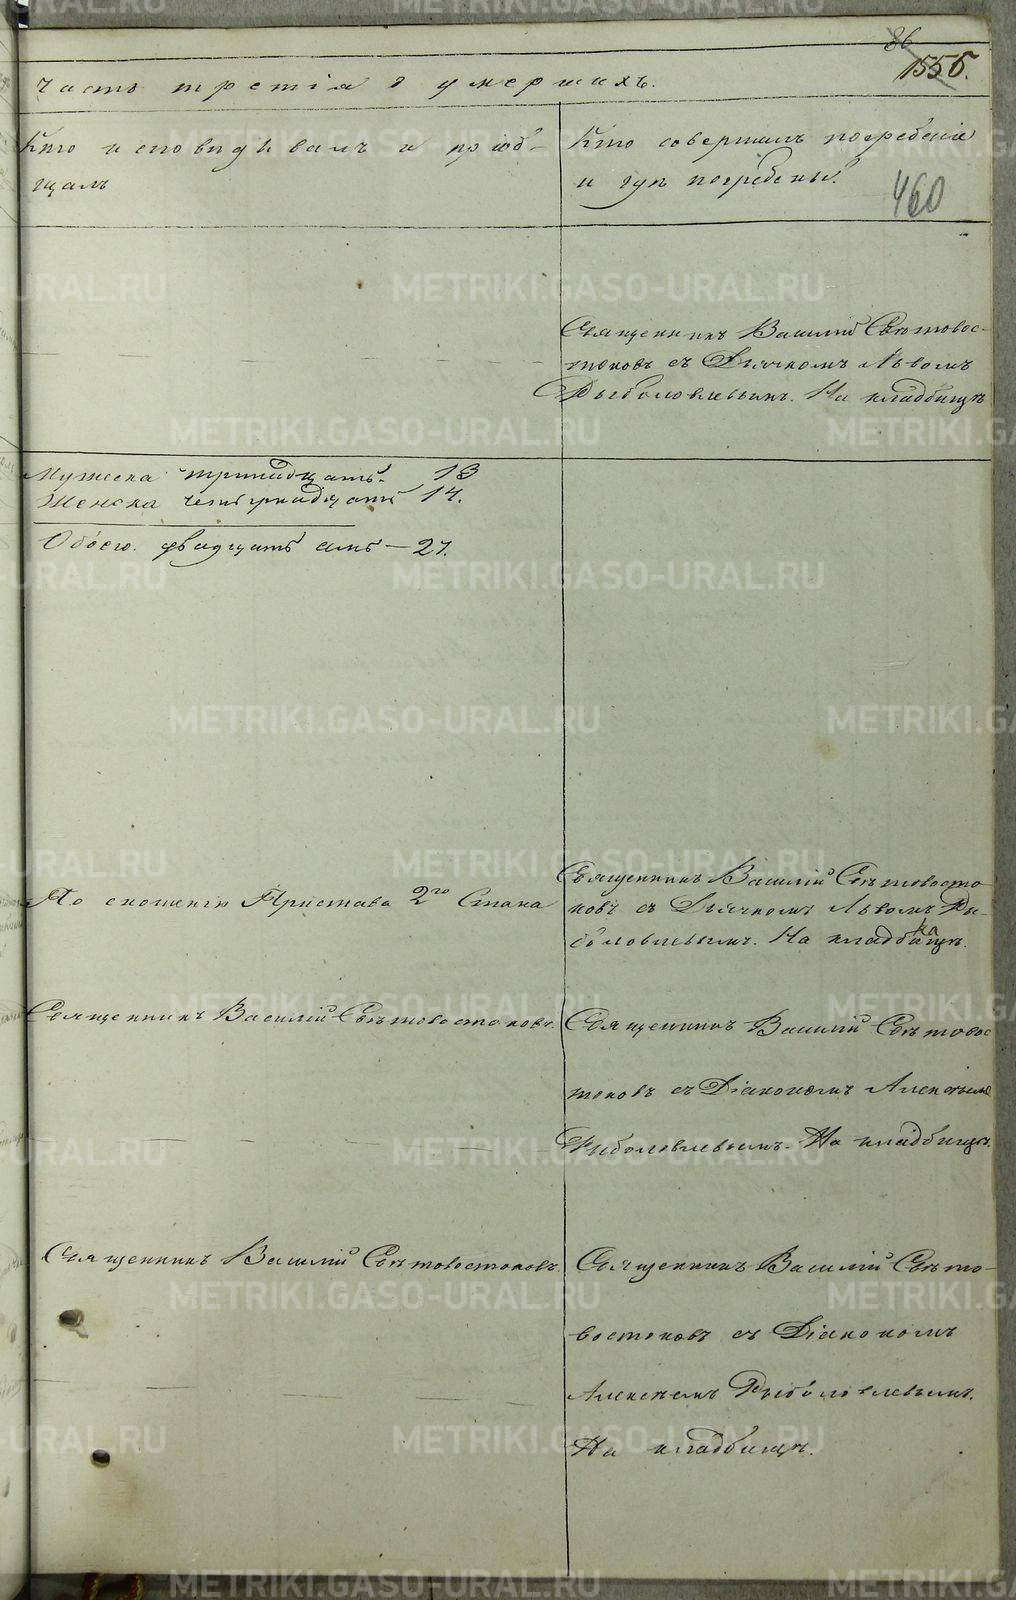 86
1556.
часть третія о умершихъ.
Кто исповѣдывалъ и пріоб-
щалъ
Кто совершилъ погребеніе
и гдѣ погребены.
460
Священникъ Василій Свѣтовос-
токовъ съ Дьячкомъ Львомъ
Рыболовлевымъ. На кладбищѣ
Мужеска тринадцать. 13
Женска четырнадцать 14.
Обоего. двадцать семь — 27.
По сношенію Пристава 2го Стана
Священникъ Василій Свѣтовосто-
ковъ съ Дьячкомъ Львомъ Ры-
боловлевымъ. На кладбищѣ.
Священникъ Василій Свѣтовостоковъ.
Священникъ Василій Свѣтовос
токовъ съ Діакономъ Алексѣемъ
Рыболовлевымъ. На кладбищѣ.
Священникъ Василій Свѣтовостоковъ.
Священникъ Василій Свѣто-
востоковъ съ Діакономъ
Алексѣемъ Рыболовлевымъ.
На кладбищѣ.
METRIKI.GASO-URAL.RU